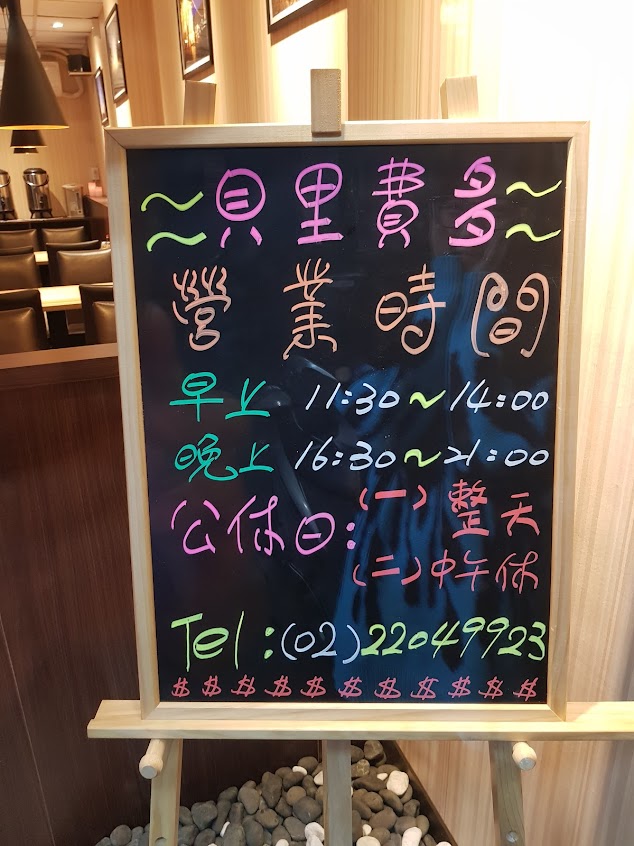 ~貝里費多~
營業時間
早上 11:30~14:00
晚上 16:30~21:00
公休日:(一)整天
(二)中午休
Tel:(02)22049923
$ $ $ $ $ $ $ $ $ $ $